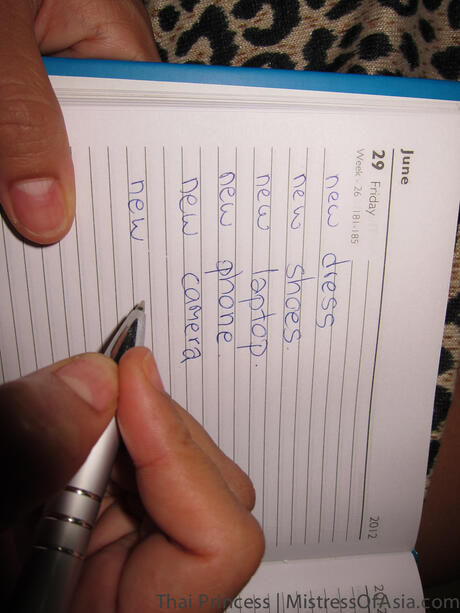 June
29 Friday
Week - 26 181-185
2012
new dress
new shoes.
new laptop.
new phone.
new camera
new
Thai Princess || MistressOfAsia.com